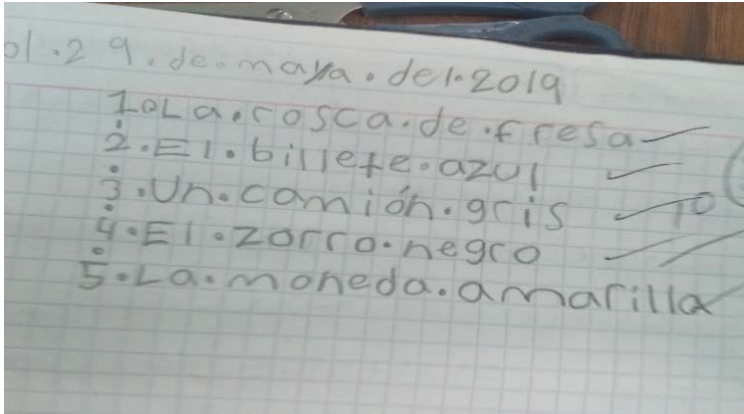 ol.29.de.maya.del.2019
1.La.rosca.de.fresa
2.El.billete.azul
3.Un.camión.gris
10
4.El.zorro.negro
5.La.moneda.amarilla